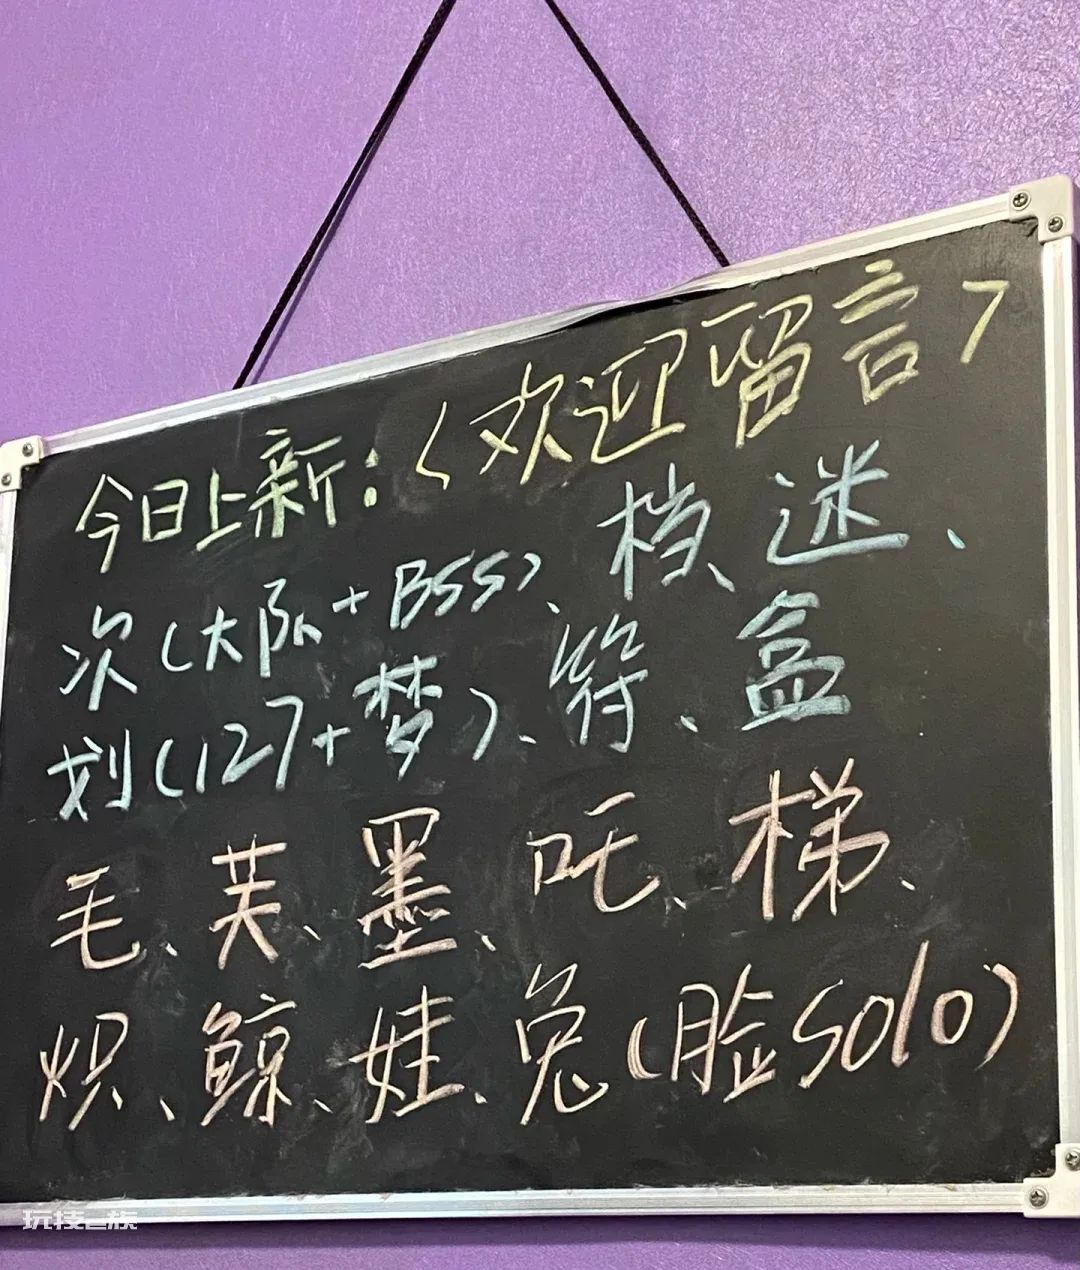 今日上新：〈欢迎留言〉
次（大队+BSS）、档、迷、
划（127+梦）、符、盒
毛、芙、墨、吒、梯、
炽、鲸、娃、兔（脸solo）
玩技e族